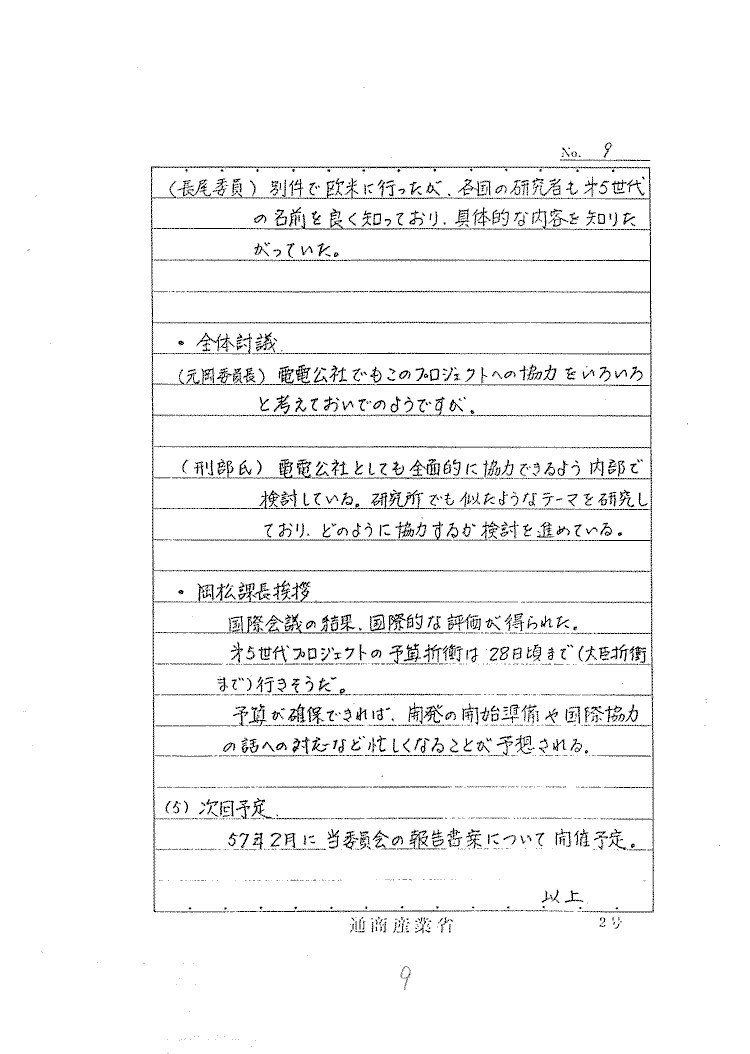 No. 9
(長尾委員) 別件で欧米に行ったが、各国の研究者も才5世代
の名前を良く知っており、具体的な内容を知りた
がっていた。
・全体討議
(元岡委員長) 電電公社でもこのプロジェクトへの協力をいろいろ
と考えておいでのようですが。
(刑部氏) 電電公社としても全面的に協力できるよう内部で
検討している。研究所でも似たようなテーマを研究し
ており、どのように協力するか検討を進めている。
・岡松課長挨拶
国際会議の結果、国際的な評価が得られた。
才5世代プロジェクトの予算折衝は28日頃まで(大臣折衝
まで)行きそうだ。
予算が確保できれば、開発の開始準備や国際協力
の話への対応など忙しくなることが予想される。
(5) 次回予定
57年2月に当委員会の報告書案について開催予定。
以上
通商産業省 2号
9